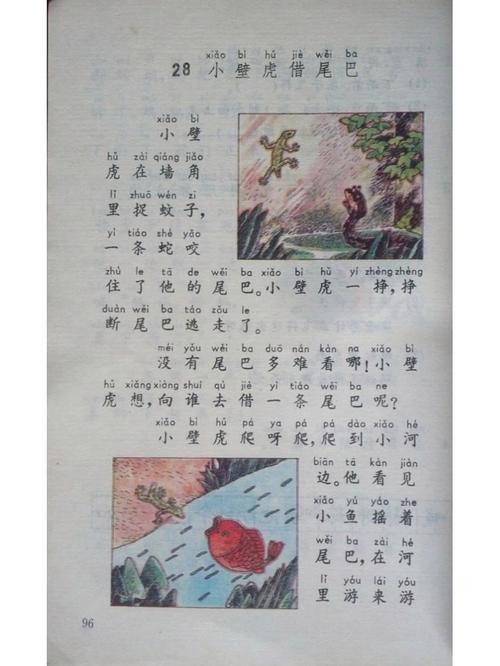 xiǎo bì hǔ jiè wěi ba
28 小壁虎借尾巴
xiǎo bì
小壁
hǔ zài qiáng jiǎo
虎在墙角
lǐ zhuō wén zi
里捉蚊子，
yì tiáo shé yǎo
一条蛇咬
zhù le tā de wěi ba xiǎo bì hǔ yí zhèng zhèng
住了他的尾巴。小壁虎一挣，挣
duàn wěi ba táo zǒu le
断尾巴逃走了。
méi yǒu wěi ba duō nán kàn na xiǎo bì
没有尾巴多难看哪！小壁
hǔ xiǎng xiàng shuí qù jiè yì tiáo wěi ba ne
虎想，向谁去借一条尾巴呢？
xiǎo bì hǔ pá ya pá pá dào xiǎo hé
小壁虎爬呀爬，爬到小河
biān tā kàn jiàn
边。他看见
xiǎo yú yáo zhe
小鱼摇着
wěi ba zài hé
尾巴，在河
lǐ yóu lái yóu
里游来游
96